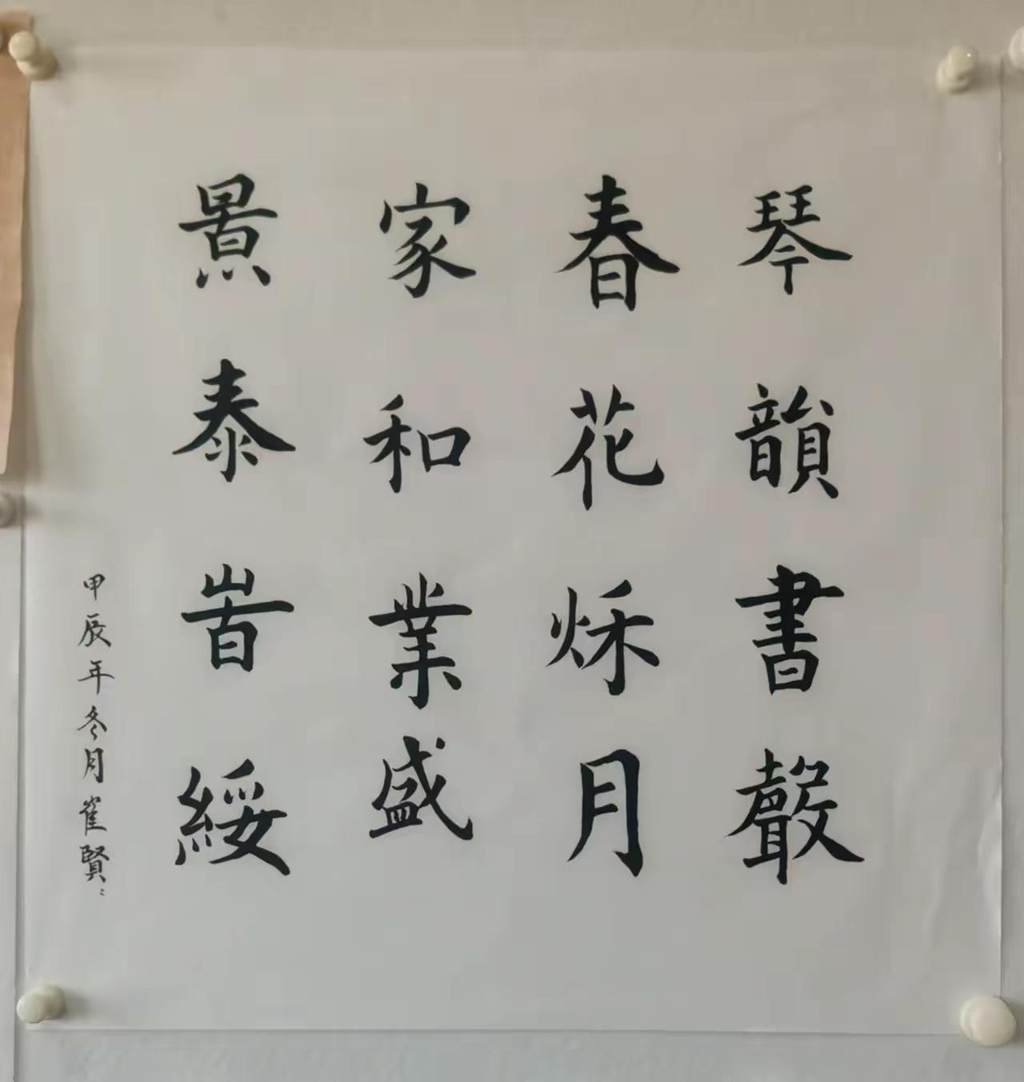 琴韻書聲
春花秌月
家和業盛
景泰旹綏
甲辰年冬月崔賢〻